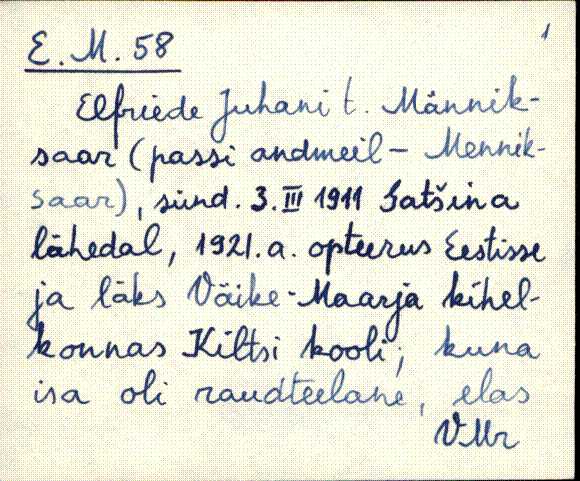 1
E. M. 58
Elfriede Juhani t. Männik-
saar (passi andmeil - Mennik-
saar), sünd. 3. III 1911 Gatšina
lähedal, 1921. a. opteerus Eestisse
ja läks Väike-Maarja kihel-
konnas Kiltsi kooli; kuna
isa oli raudteelane, elas
VMr